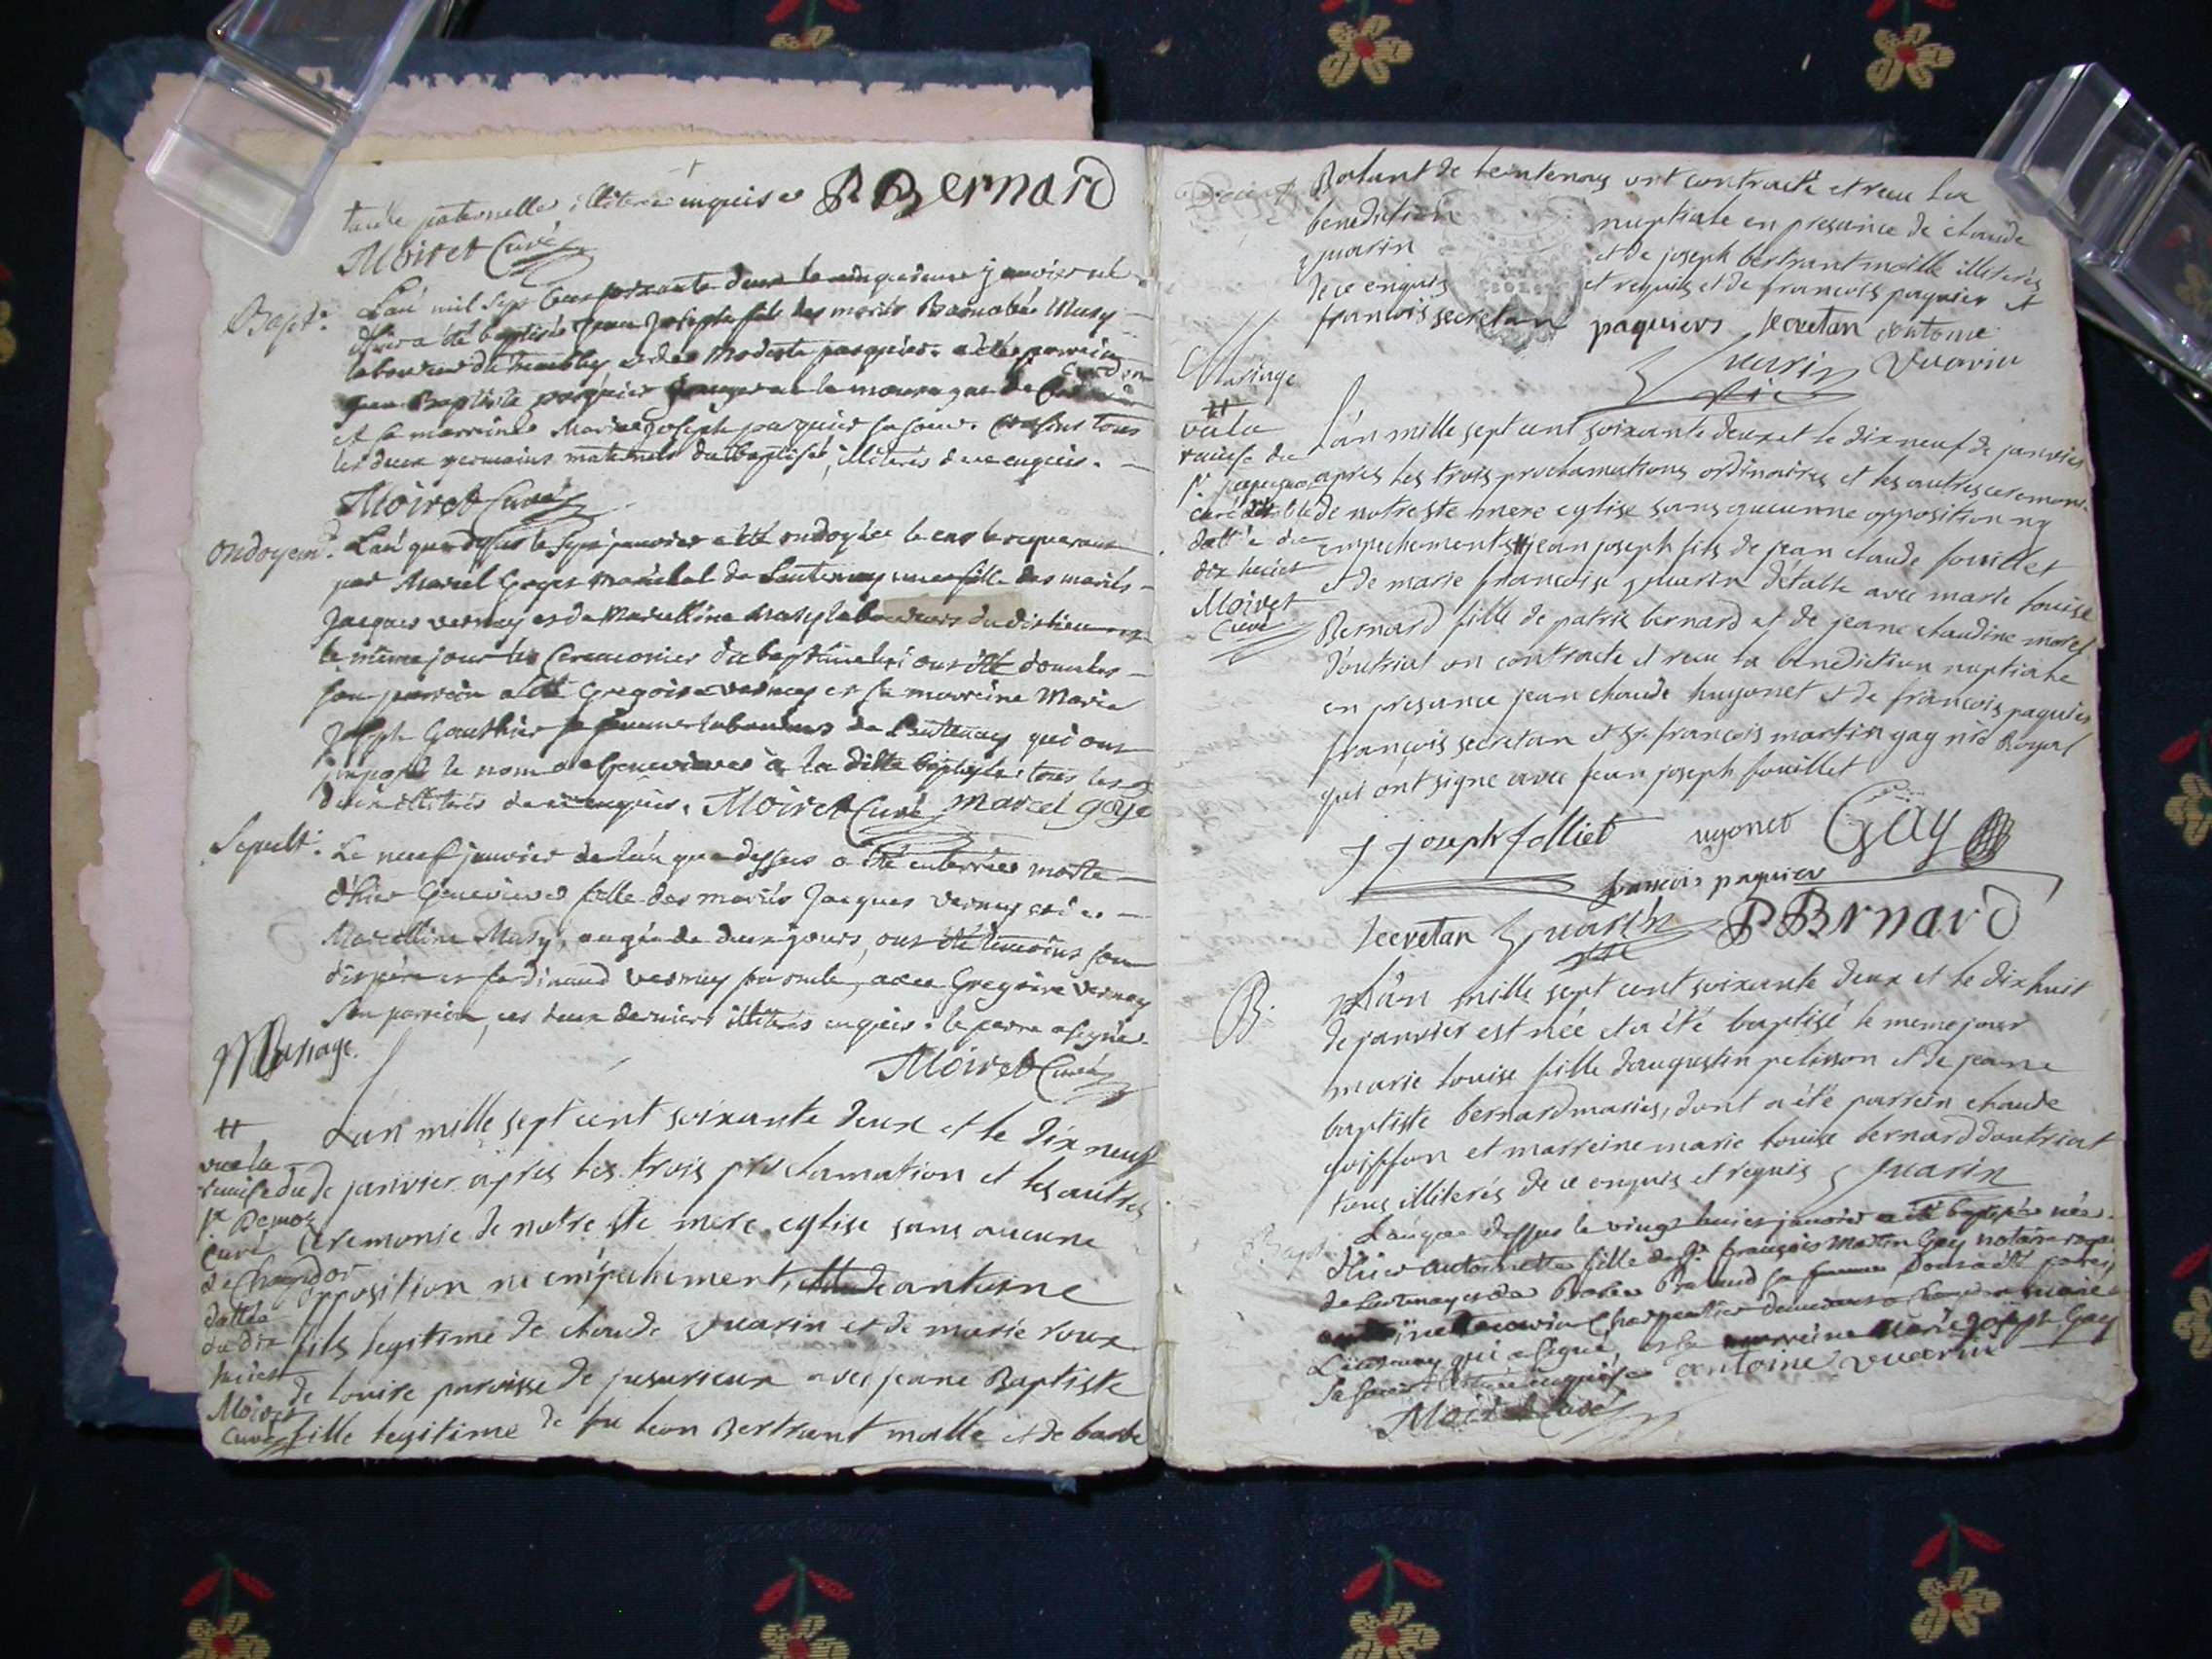 tante paternelle illiteree enquise P Bernard
Moiret Curé
Bapt.
L'an mil sept cens soixante deux le cinquieme janvier né
d'hier a été baptisé jean Joseph fils des mariés Barnabé Musy
laboureur du et de Modeste pasquier a été parrein
jean Baptiste pasquier
et sa marreine Marie Joseph pasquier sa soeur
les deux germains maternels du baptisé, illiterés de ce enquis.
Moiret Curé
ondoyem.t
L'an que dessus le sept janvier a été ondoyée le cas le requerant
par Marcel Goyet Maréchal de Lentenay une fille des mariés
Jacques vernay et de Marcelline Musy laboureurs du dit lieu et
le même jour les Ceremonies du baptême lui ont été données
son parrein a été Gregoire vernay et sa marreine Marie
Joseph Gauthier sa femme laboureurs de Lentenay qui ont
imposé le nom de Genevieve à la ditte baptisée tous les
deux illiterés de ce enquis. Moiret Curé marcel goÿe
Sepult.
Le neuf janvier de l'an que dessus a été enterrée morte
d'hier Genevieve fille des mariés Jacques vernay et de
Marcelline Musy, aagée de deux jours, ont été temoins son
dit pere et ferdinand vernay avec Gregoire vernay
son parrein, ces deux derniers illiterés enquis. le perre a signé.
Moiret Curé
Mariage.
L'an mille sept cent soixante deux et le dix neuf
de janvier apres les trois proclamation et les autres
ceremonie de notre ste mere eglise sans aucune
opposition ni empechement, antoine
fils legitime de claude zuarin et de marie roux
de louire paroisse de jusurieux avec jeane Baptiste
fille legitime de feu leon Bertrant molle et de barbe
vue la
remise du
s.r Demoz
Curé
de Champdor
dattée
du dix
huict
Moiret
Curé
Bolant de lentenay ont contracté et recu la
benediction nuptiale en presance de claude
zuarin et de joseph bertrant molle illiterés
de ce enquis et requis et de francois paquier et
francois secretan paquiers secretan antoine
zuarin vuarin
vic
Mariage
vu la
remise du
s.r
curé
datté du
dix huict
Moiret
Curé
L'an mille sept cent soixante deux et le dix neuf de janvier
apres les trois proclamations ordinaires et les autres ceremoni
de notre ste mere eglise sans aucunne opposition ny
empechements jean joseph fils de jean claude fouillet
et de marie francoise zuarin avec marie louise
Bernard fille de patris bernard et de jeane claudine morel
d'outriat on contracte et recu la benediction nuptiale
en presance jean claude hugonet et de francois paquier
françois secretan et sr francois martin gay nre Royal
qui ont signe avec jean joseph fouillet
j joseph folliet ugonet Gay
francois paquier
secretan zuarin vic P BErnard
B.
L'an mille sept cent soixante deux et le dix huit
de janvier est née et a été baptisé le meme jour
marie louise fille d'augustin pelisson et de jeane
baptiste bernard maries, dont a été parrein claude
goiffon et marreine marie louise bernard doutriat
tous illiterés de ce enquis et requis zuarin
Bapt.
L'an que dessus le vingt huict janvier a été baptisée née
d'hier antoinette fille de s.r françois Martin Gay notaire royal
de Lentenay et de sa femme dont a été parrein
Lentenay qui a signé, et la marreine Marie Joseph Gay
sa soeur enquise antoine vuarin
Moiret Curé